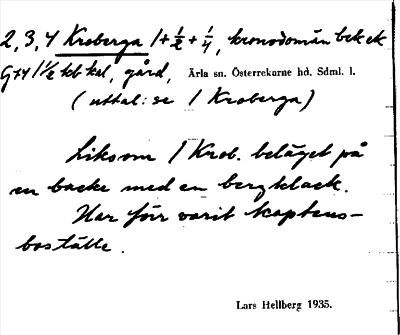 2, 3, 4 Kroberga 1+½+¼, kronodomän bek ek
G+4 1½ kb kal, gård, Ärla sn. Österrekarne hd. Sdml. l.
(uttal: se 1 Kroberga)
Liksom 1 Krob. beläget på
en backe med en bergklack.
Har förr varit kaptens-
boställe.
Lars Hellberg 1935.